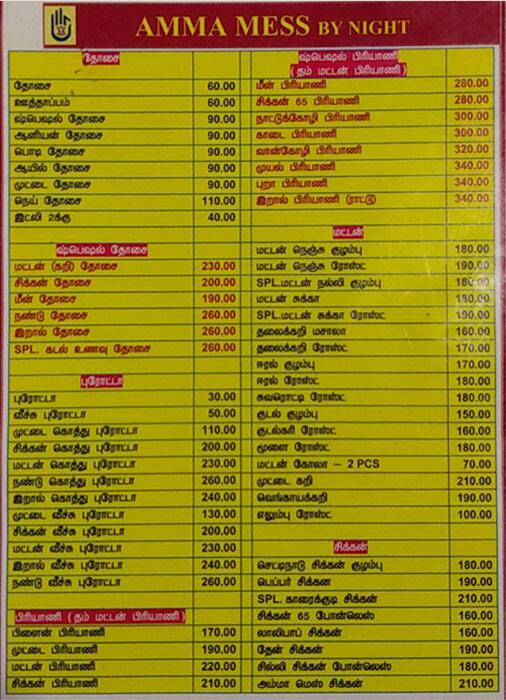 AMMA MESS BY NIGHT
தோசை
தோசை 60.00
ஊத்தாப்பம் 60.00
ஷ்பெஷல் தோசை 90.00
ஆனியன் தோசை 90.00
பொடி தோசை 90.00
ஆயில் தோசை 90.00
முட்டை தோசை 90.00
நெய் தோசை 110.00
இட்லி 2க்கு 40.00
ஷ்பெஷல் தோசை
மட்டன் (கறி) தோசை 230.00
சிக்கன் தோசை 200.00
மீன் தோசை 190.00
நண்டு தோசை 260.00
இறால் தோசை 260.00
SPL. கடல் உணவு தோசை 260.00
புரோட்டா
புரோட்டா 30.00
வீச்சு புரோட்டா 50.00
முட்டை கொத்து புரோட்டா 110.00
சிக்கன் கொத்து புரோட்டா 200.00
மட்டன் கொத்து புரோட்டா 230.00
நண்டு கொத்து புரோட்டா 260.00
இறால் கொத்து புரோட்டா 240.00
முட்டை வீச்சு புரோட்டா 130.00
சிக்கன் வீச்சு புரோட்டா 200.00
மட்டன் வீச்சு புரோட்டா 230.00
இறால் வீச்சு புரோட்டா 240.00
நண்டு வீச்சு புரோட்டா 260.00
பிரியாணி (தம் மட்டன் பிரியாணி)
பிளைன் பிரியாணி 170.00
முட்டை பிரியாணி 190.00
மட்டன் பிரியாணி 220.00
சிக்கன் பிரியாணி 210.00
ஷ்பெஷல் பிரியாணி
(தம் மட்டன் பிரியாணி)
மீன் பிரியாணி 280.00
சிக்கன் 65 பிரியாணி 280.00
நாட்டுக்கோழி பிரியாணி 300.00
காடை பிரியாணி 300.00
வான்கோழி பிரியாணி 320.00
முயல் பிரியாணி 340.00
புறா பிரியாணி 340.00
இறால் பிரியாணி (ராட்டு) 340.00
மட்டன்
மட்டன் நெஞ்சு குழம்பு 180.00
மட்டன் நெஞ்சு ரோஸ்ட் 190.00
SPL.மட்டன் நல்லி குழம்பு 180.00
மட்டன் சுக்கா 180.00
SPL.மட்டன் சுக்கா ரோஸ்ட் 190.00
தலைக்கறி மசாலா 160.00
தலைக்கறி ரோஸ்ட் 170.00
ஈரல் குழம்பு 170.00
ஈரல் ரோஸ்ட் 180.00
சுவரொட்டி ரோஸ்ட் 180.00
குடல் குழம்பு 150.00
குடல்கரி ரோஸ்ட் 160.00
மூளை ரோஸ்ட் 180.00
மட்டன் கோலா - 2 PCS 70.00
முட்டை கறி 210.00
வெங்காயக்கறி 190.00
எலும்பு ரோஸ்ட் 100.00
சிக்கன்
செட்டிநாடு சிக்கன் குழம்பு 180.00
பெப்பர் சிக்கன 190.00
SPL. காரைக்குடி சிக்கன் 210.00
சிக்கன் 65 போன்லெஸ் 160.00
லாலிபாப் சிக்கன் 160.00
தேன் சிக்கன் 190.00
சில்லி சிக்கன் போன்லெஸ் 180.00
அம்மா மெஸ் சிக்கன் 210.00